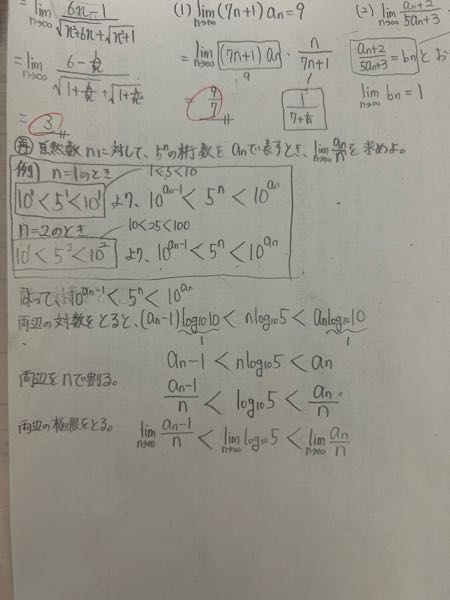 = lim n→∞ 6n-1 / √n²+6n + √n²+1
= lim n→∞ 6 - 1/n / √1+6/n + √1+1/n²
= 3
(1) lim n→∞ (7n+1) an = 9
= lim n→∞ (7n+1) an · n / 7n+1
9
1 / 7+1/n
= 9/7
(2) lim n→∞ an+2 / 5an+3
an+2 / 5an+3 = bn とお
lim n→∞ bn = 1
再 自然数nに対して、5ⁿの桁数をanで表すとき、lim n→∞ an/n を求めよ。
例) n=1のとき 1<5<10
10⁰ < 5¹ < 10¹ より、10^(an-1) < 5ⁿ < 10^(an)
n=2のとき 10<25<100
10¹ < 5² < 10² より、10^(an-1) < 5ⁿ < 10^(an)
よって、10^(an-1) < 5ⁿ < 10^(an)
両辺の対数をとると、(an-1)log₁₀10 < nlog₁₀5 < anlog₁₀10
1 1
an-1 < nlog₁₀5 < an
両辺をnで割る。 an-1/n < log₁₀5 < an/n
両辺の極限をとる。 lim n→∞ an-1/n < lim n→∞ log₁₀5 < lim n→∞ an/n